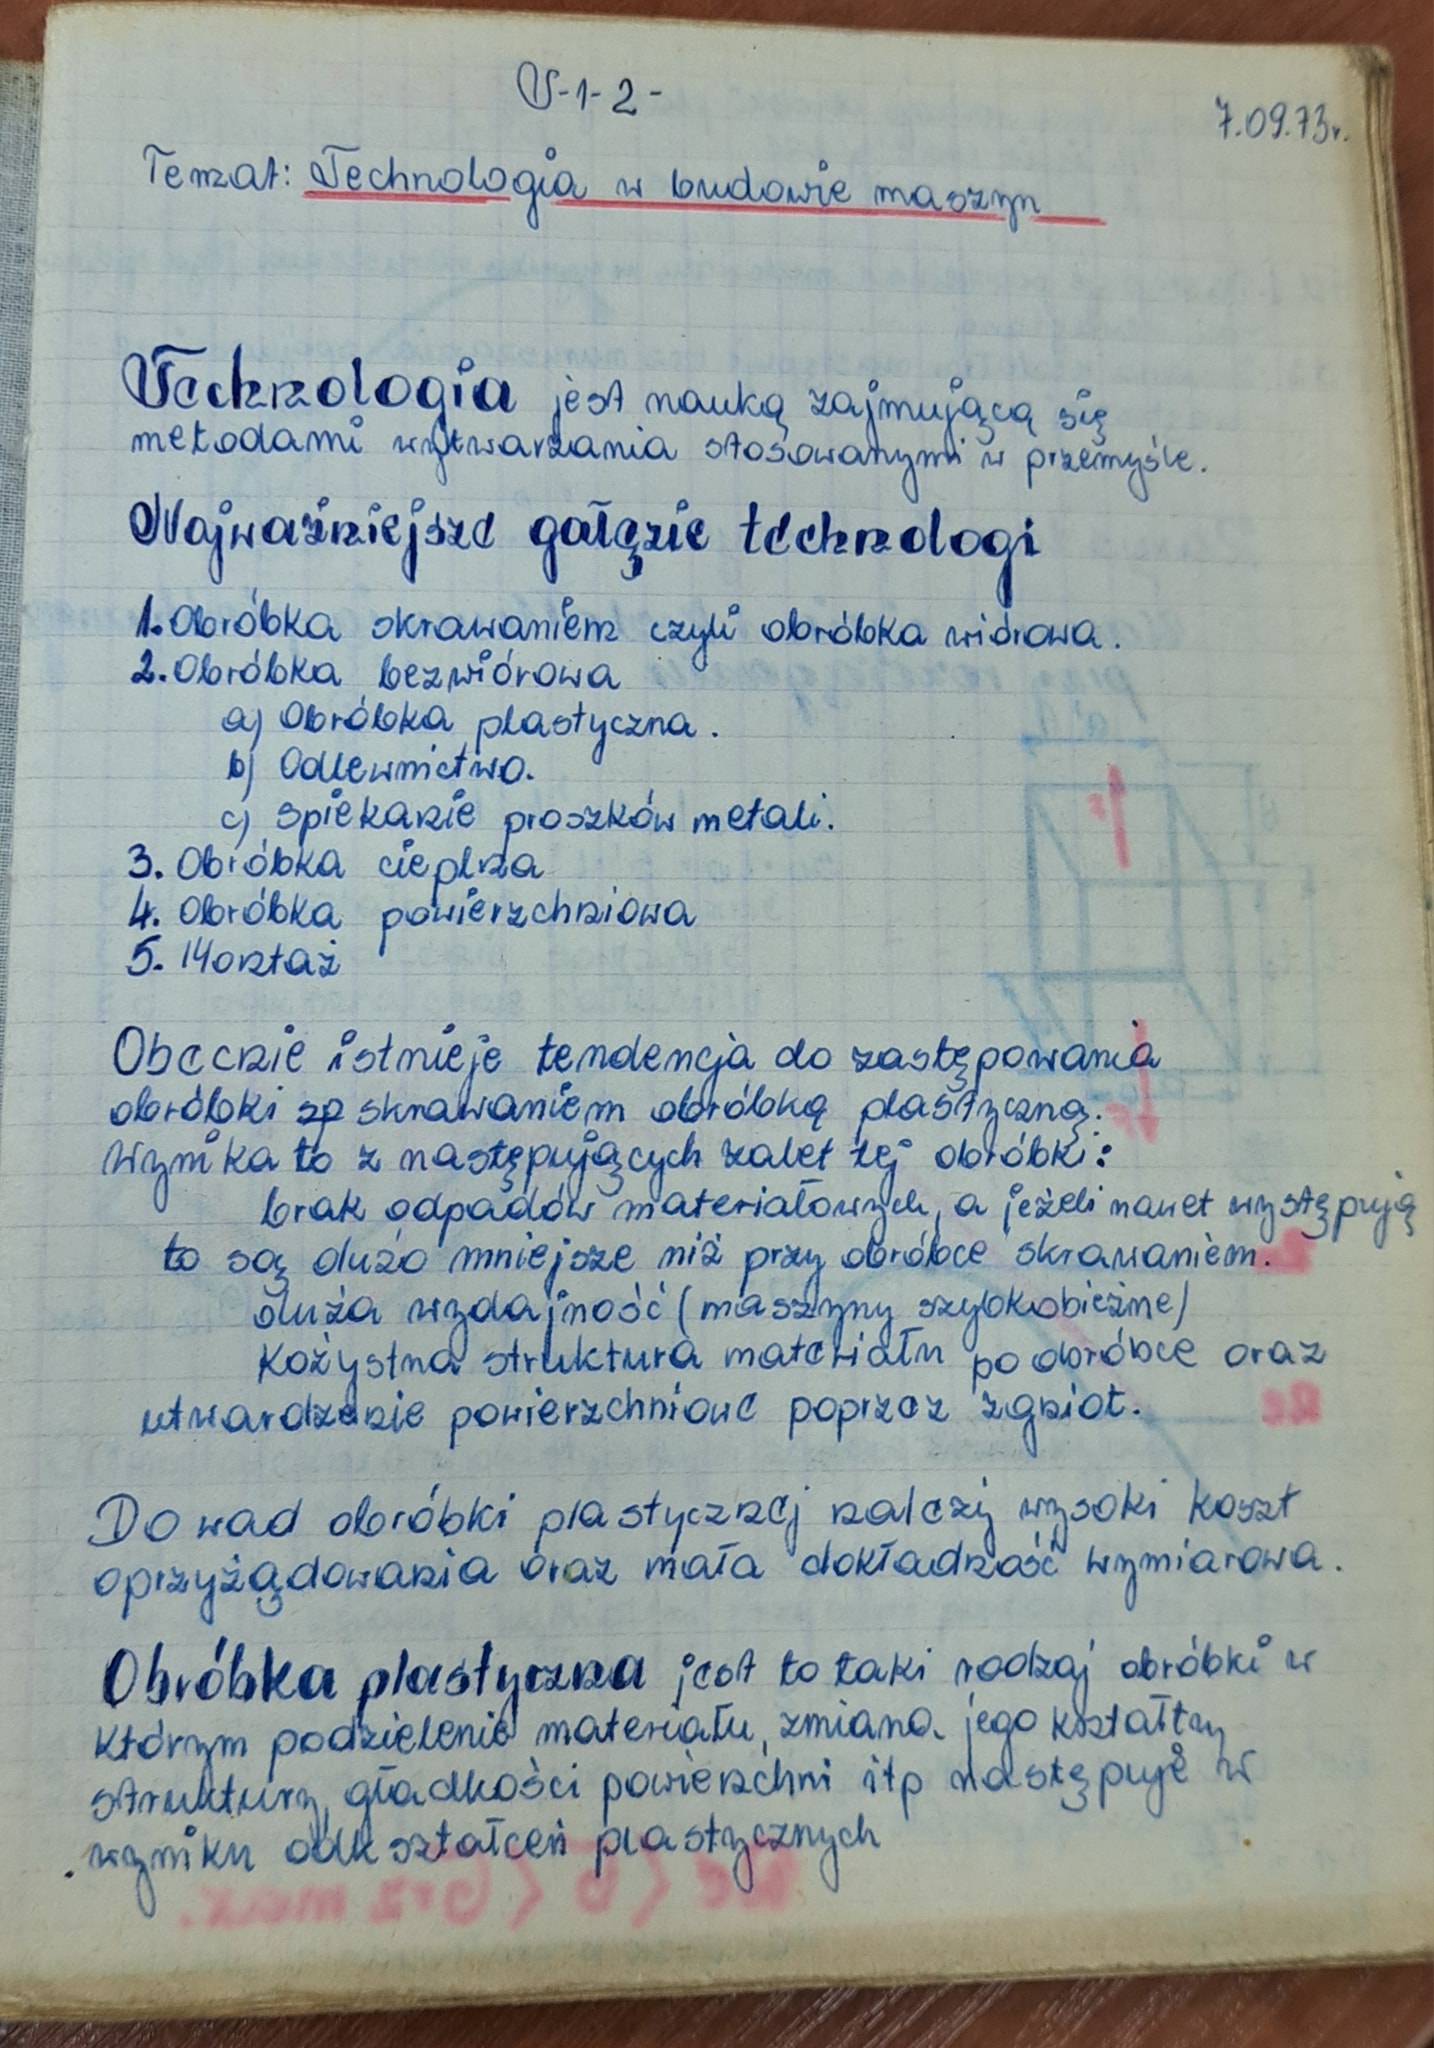 V-1-2-
7.09.73r.
Temat: Technologia w budowie maszyn
Technologia jest nauką zajmującą się
metodami wytwarzania stosowanymi w przemyśle.
Najważniejsze gałęzie technologi
1. Obróbka skrawaniem czyli obróbka wiórowa.
2. Obróbka bezwiórowa
a) Obróbka plastyczna.
b) Odlewnictwo.
c) spiekanie proszków metali.
3. Obróbka cieplna
4. Obróbka powierzchniowa
5. Montaż
Obecnie istnieje tendencja do zastępowania
obróbki sp skrawaniem obróbką plastyczną.
Wynika to z następujących zalet tej obróbki:
brak odpadów materiałowych, a jeżeli nawet występują
to są dużo mniejsze niż przy obróbce skrawaniem.
duża wydajność (maszyny szybkobieżne)
Kożystna struktura materiału po obróbce oraz
utwardzenie powierzchniowe poprzez zgniot.
Do wad obróbki plastycznej należy wysoki koszt
oprzyżądowania oraz mała dokładność wymiarowa.
Obróbka plastyczna jest to taki rodzaj obróbki w
którym podzielenie materiału, zmiana jego kształtu,
struktury, gładkości powierzchni itp następuje w
wyniku odkształceń plastycznych